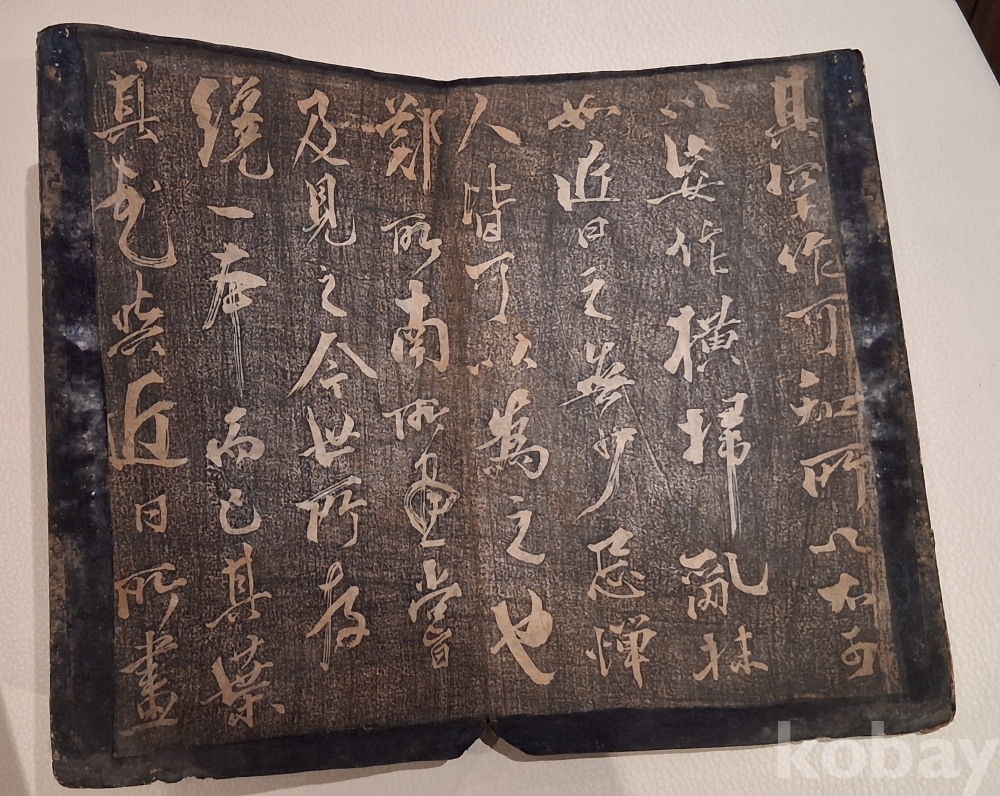 其罕作可知所以不可
以妄作橫掃亂抹
如近日之無少忌憚
人皆可以爲之也
鄭所南所畫嘗
及見之今世所存
纔一本而已其葉
其花與近日所畫
kobay